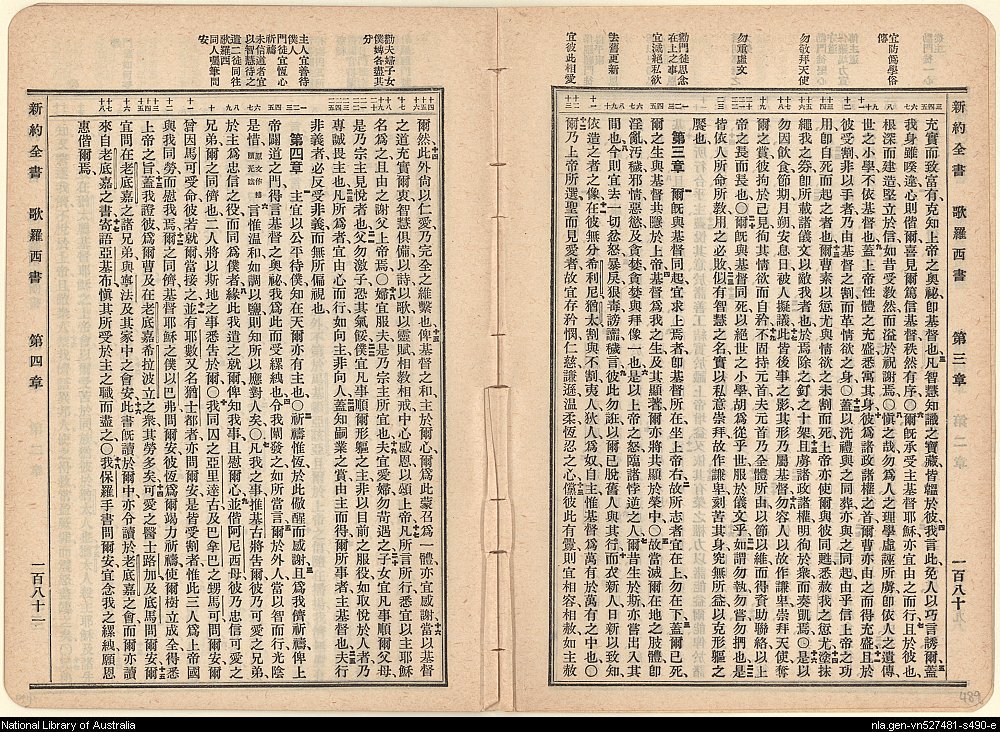 宜防僞學俗
傳
勿敬拜天使
勿重虛文
勸門徒思念
在上之事
宜滅絕私欲
去舊更新
宜彼此相愛
新約全書 歌羅西書 第三章
充實而致富有克知上帝之奧祕卽基督也凡智慧知識之寶藏皆韞於彼我言此免人以巧言誘爾蓋
我身雖暌違心則偕爾喜見爾篤信基督秩然有序〇爾旣承受主基督耶穌亦宜由之而行且於彼也
根深而建造堅立於信如昔受敎然而溢於祝謝焉〇愼之哉勿爲人之理學虛誣所虜卽依人之遺傳
世之小學不依基督也蓋上帝性體之充盛悉寓其身彼爲諸政諸權之首爾曹亦由之而得充盛且於
彼受割非以手者乃由基督之割而革情欲之身〇蓋以洗禮與之同葬亦與之同起由乎信上帝之功
用卽自死而起之者也爾曹素以愆尤與情欲之未割而死上帝亦使爾與彼同甦悉赦我之愆尤塗抹
繩我之券卽所載諸儀文以敵我者也於焉除之釘之十架且虜諸政諸權明徇於衆而奏凱焉〇是以
勿因飲食節期月朔安息日被人擬議此皆後事之影其形乃屬基督勿容人以故作謙卑崇拜天使奪
爾之賞彼拘於己見徇其情欲而自矜不固持元首夫元首乃全體所由以節以維而得資助聯絡以上
帝之長而長也〇爾旣與基督同死以絕世之小學胡爲從乎世服於儀文乎如謂勿執勿嘗勿捫也是
皆依人所命所敎用之必敗似有智慧之名實以私意崇拜故作謙卑刻苦其身究無所益以克形軀之
慾也
第三章 爾旣與基督同起宜求上焉者卽基督所在坐上帝右故所志者宜在上勿在下蓋爾已死
爾之生與基督共隱於上帝基督爲我之生及其顯著爾亦將共顯於榮中〇故當滅爾在地之肢體卽
淫亂汚穢邪情惡慾及貪婪貪婪與拜像一也是以上帝之怒臨諸悖逆之子爾昔生於斯亦嘗出入其
間也今則宜去一切忿怒暴戾狠毒謗讟穢言彼此勿誑以爾已脫舊人與其行而衣新人日新以致知
依造之者之像在彼無分希利尼猶太割與不割夷人狄人爲奴自主惟基督爲萬有於萬有之中也〇
爾乃上帝所選聖而見愛者故宜存矜憫仁慈謙遜溫柔恆忍之心儻彼此有釁則宜相容相赦如主赦
勸夫婦子女
僕婢各盡其
分
主人宜善待
僕人
門徒宜恆心
祈禱
未信道者宜
以智慧待之
遣二徒同往
歌羅西
同人囑筆問
安
爾然此外尙以仁愛乃完全之維繫也俾基督之和主於爾心爾爲此蒙召爲一體亦宜感謝當以基督
之道充實爾衷智慧俱備以詩以歌以靈賦相敎相戒中心感恩以頌上帝凡所言所行悉宜以主耶穌
名爲之且由之謝父上帝焉〇婦宜服夫是乃宗主所宜也夫宜愛婦勿苛遇之子女宜凡事順爾父母
是乃宗主見悅者也父勿激子恐其氣餒僕宜凡事順爾形軀之主非以目前之服役如取悅於人者乃
專誠畏主也凡所爲者宜由心而行如向主非向人蓋知嗣業之賞由主而得爾所事者主基督也夫行
非義者必反受非義而無所偏視也
第四章 主宜以公平待僕知在天爾亦有主也〇祈禱惟恆於此儆醒而感謝且爲我儕祈禱俾上
帝闢道之門得言基督之奧祕我爲此而受縲絏也令我闡發之如所當言爾於外人當以智而行光陰
是惜言惟溫和如調以鹽則知所以應對人矣〇凡我之事推基古將告爾彼乃可愛之兄弟
於主爲忠信之役而同爲僕者緣此我遣之就爾俾知我事且慰爾心並偕阿尼西母彼乃忠信可愛之
兄弟爾之同儕也二人將以斯地之事悉告於爾〇我同囚之亞里達古及巴拿巴之甥馬可問爾安爾
曾因馬可受命彼若就爾當接之並有耶數又名猶士都者亦問爾安是皆受割者惟此三人爲上帝國
與我同勞而慰我焉爾之同儕基督耶穌之僕以巴弗問爾安彼恆爲爾竭力祈禱使爾樹立成全得悉
上帝之旨蓋我證彼爲爾曹及在老底嘉希拉波立之衆其勞多矣可愛之醫士路加及底馬問爾安爾
宜問在老底嘉之諸兄弟與寧法及其家中之會安此書旣讀於爾中亦令讀於老底嘉之會而爾亦讀
來自老底嘉之書寄語亞基布愼其所受於主之職而盡之〇我保羅手書問爾安宜念我之縲絏願恩
惠偕爾焉
新約全書 歌羅西書 第四章
489
National Library of Australia
nla.gen-vn527481-s490-e